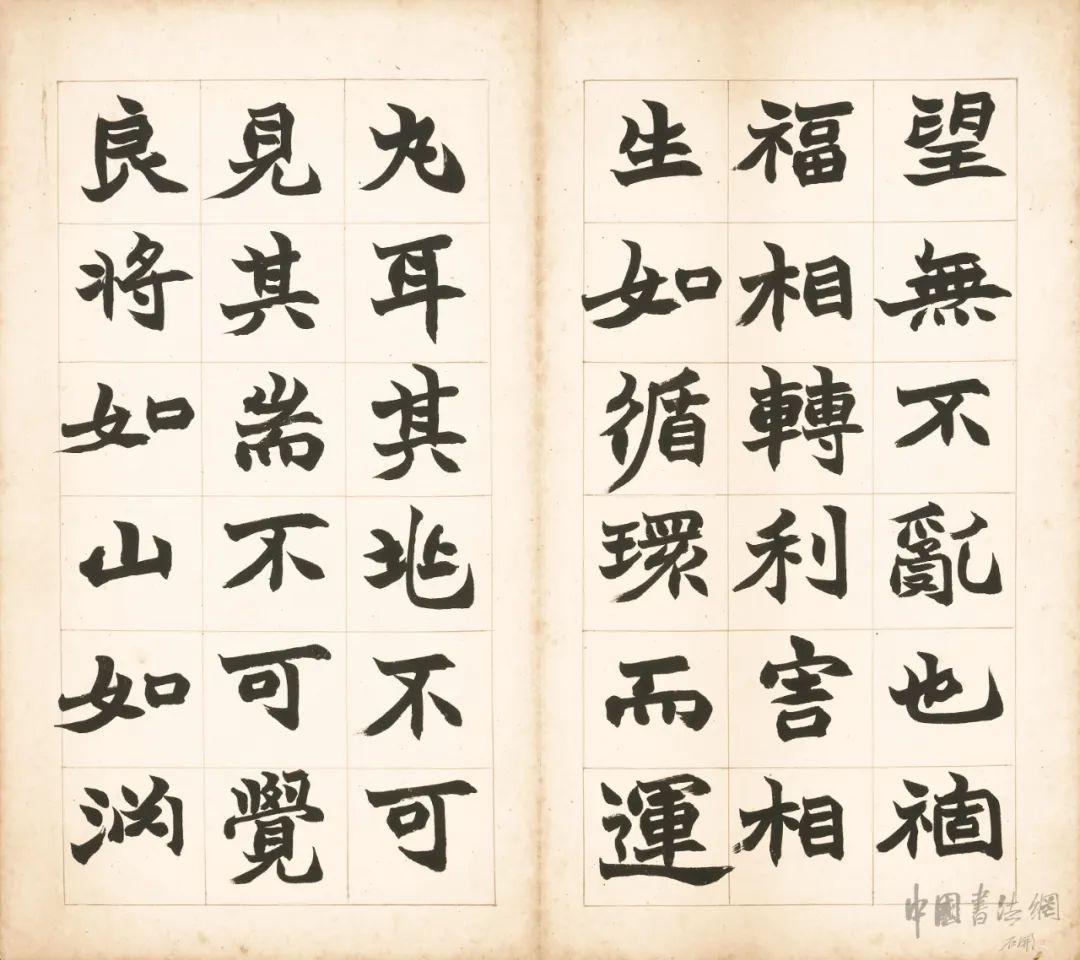 望無不亂也禍
福相轉利害相
生如循環而運
丸耳其兆不可
見其耑不可覺
良將如山如淵
中國書法網